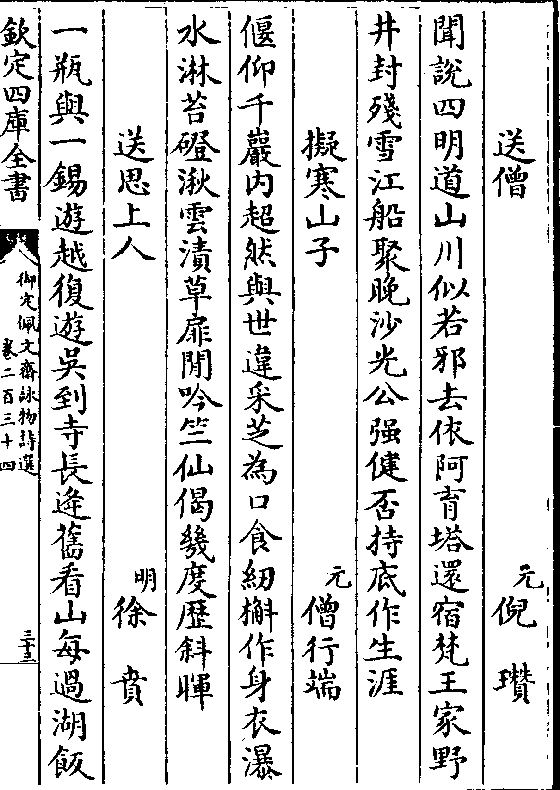 送僧　元倪瓚
聞說四明道山川似若邪去依阿育塔還宿梵王家野
井封殘雪江船聚晚沙光公强健否持底作生涯
擬寒山子　元僧行端
偃仰千巖內超然與世違采芝為口食紉槲作身衣瀑
水淋苔磴湫雲漬草扉閒吟竺仙偈幾度歴斜暉
送思上人　明徐賁
一瓶與一錫遊越復遊吳到寺長逄舊看山每過湖飯
欽定四庫全書
御定佩文齋詠物詩選
卷二百三十四
三十三